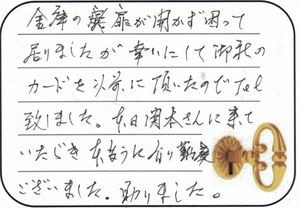 金庫の扉が開かず困って
居りましたが幸いにして御社の
カードを以前に頂いたのでTel
致しました。本日関本さんに来て
いただき本当に有り難く
ございました。助りました。